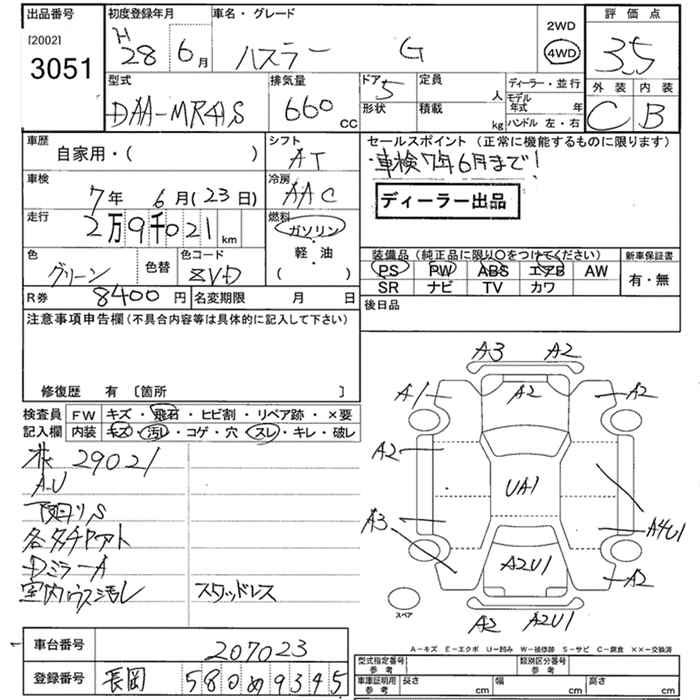 出品番号
[2002]
3051
初度登録年月
H
28 6月
車名・グレード
ハスラー G
2WD
4WD
評価点
3.5
型式
DAA-MR41S
排気量
660 CC
ドア
5
形状
定員
人
積載
kg
ディーラー・並行
モデル年式 年
ハンドル 左・右
外装 内装
C B
車歴
自家用・( )
シフト
AT
セールスポイント (正常に機能するものに限ります)
車検7年6月まで!
ディーラー出品
車検
7年 6月(23日)
冷房
AAC
走行
2万9千021km
燃料
ガソリン
軽・油
( )
色
グリーン
色替
色コード
ZVD
装備品(純正品に限り○をつけてください)
PS PW ABS エアB AW
SR ナビ TV カワ
新車保証書
有・無
R券 8400円
名変期限 月 日
後日品
注意事項申告欄(不具合内容等は具体的に記入して下さい)
修復歴 有 〔箇所 〕
検査員 FW キズ・飛石・ヒビ割・リペア跡・×要
記入欄 内装 キズ・汚レ・コゲ・穴・スレ・キレ・破レ
29021
A・U
下廻りS
DミラーA
室内ウス汚レ
スタッドレス
A3 A2
A1 A2 A2
A2
UA1
A3 A4U1
A2U1
A2
A2 A2U1
スペア
A-キズ E-エクボ U-凹み W-補修跡 S-サビ C-腐食 ××-交換済
車台番号 207023
登録番号 長岡 580 め 9345
型式指定番号 参考
類別区分番号 参考
車庫証明用 参考
長さ cm
幅 cm
高さ cm